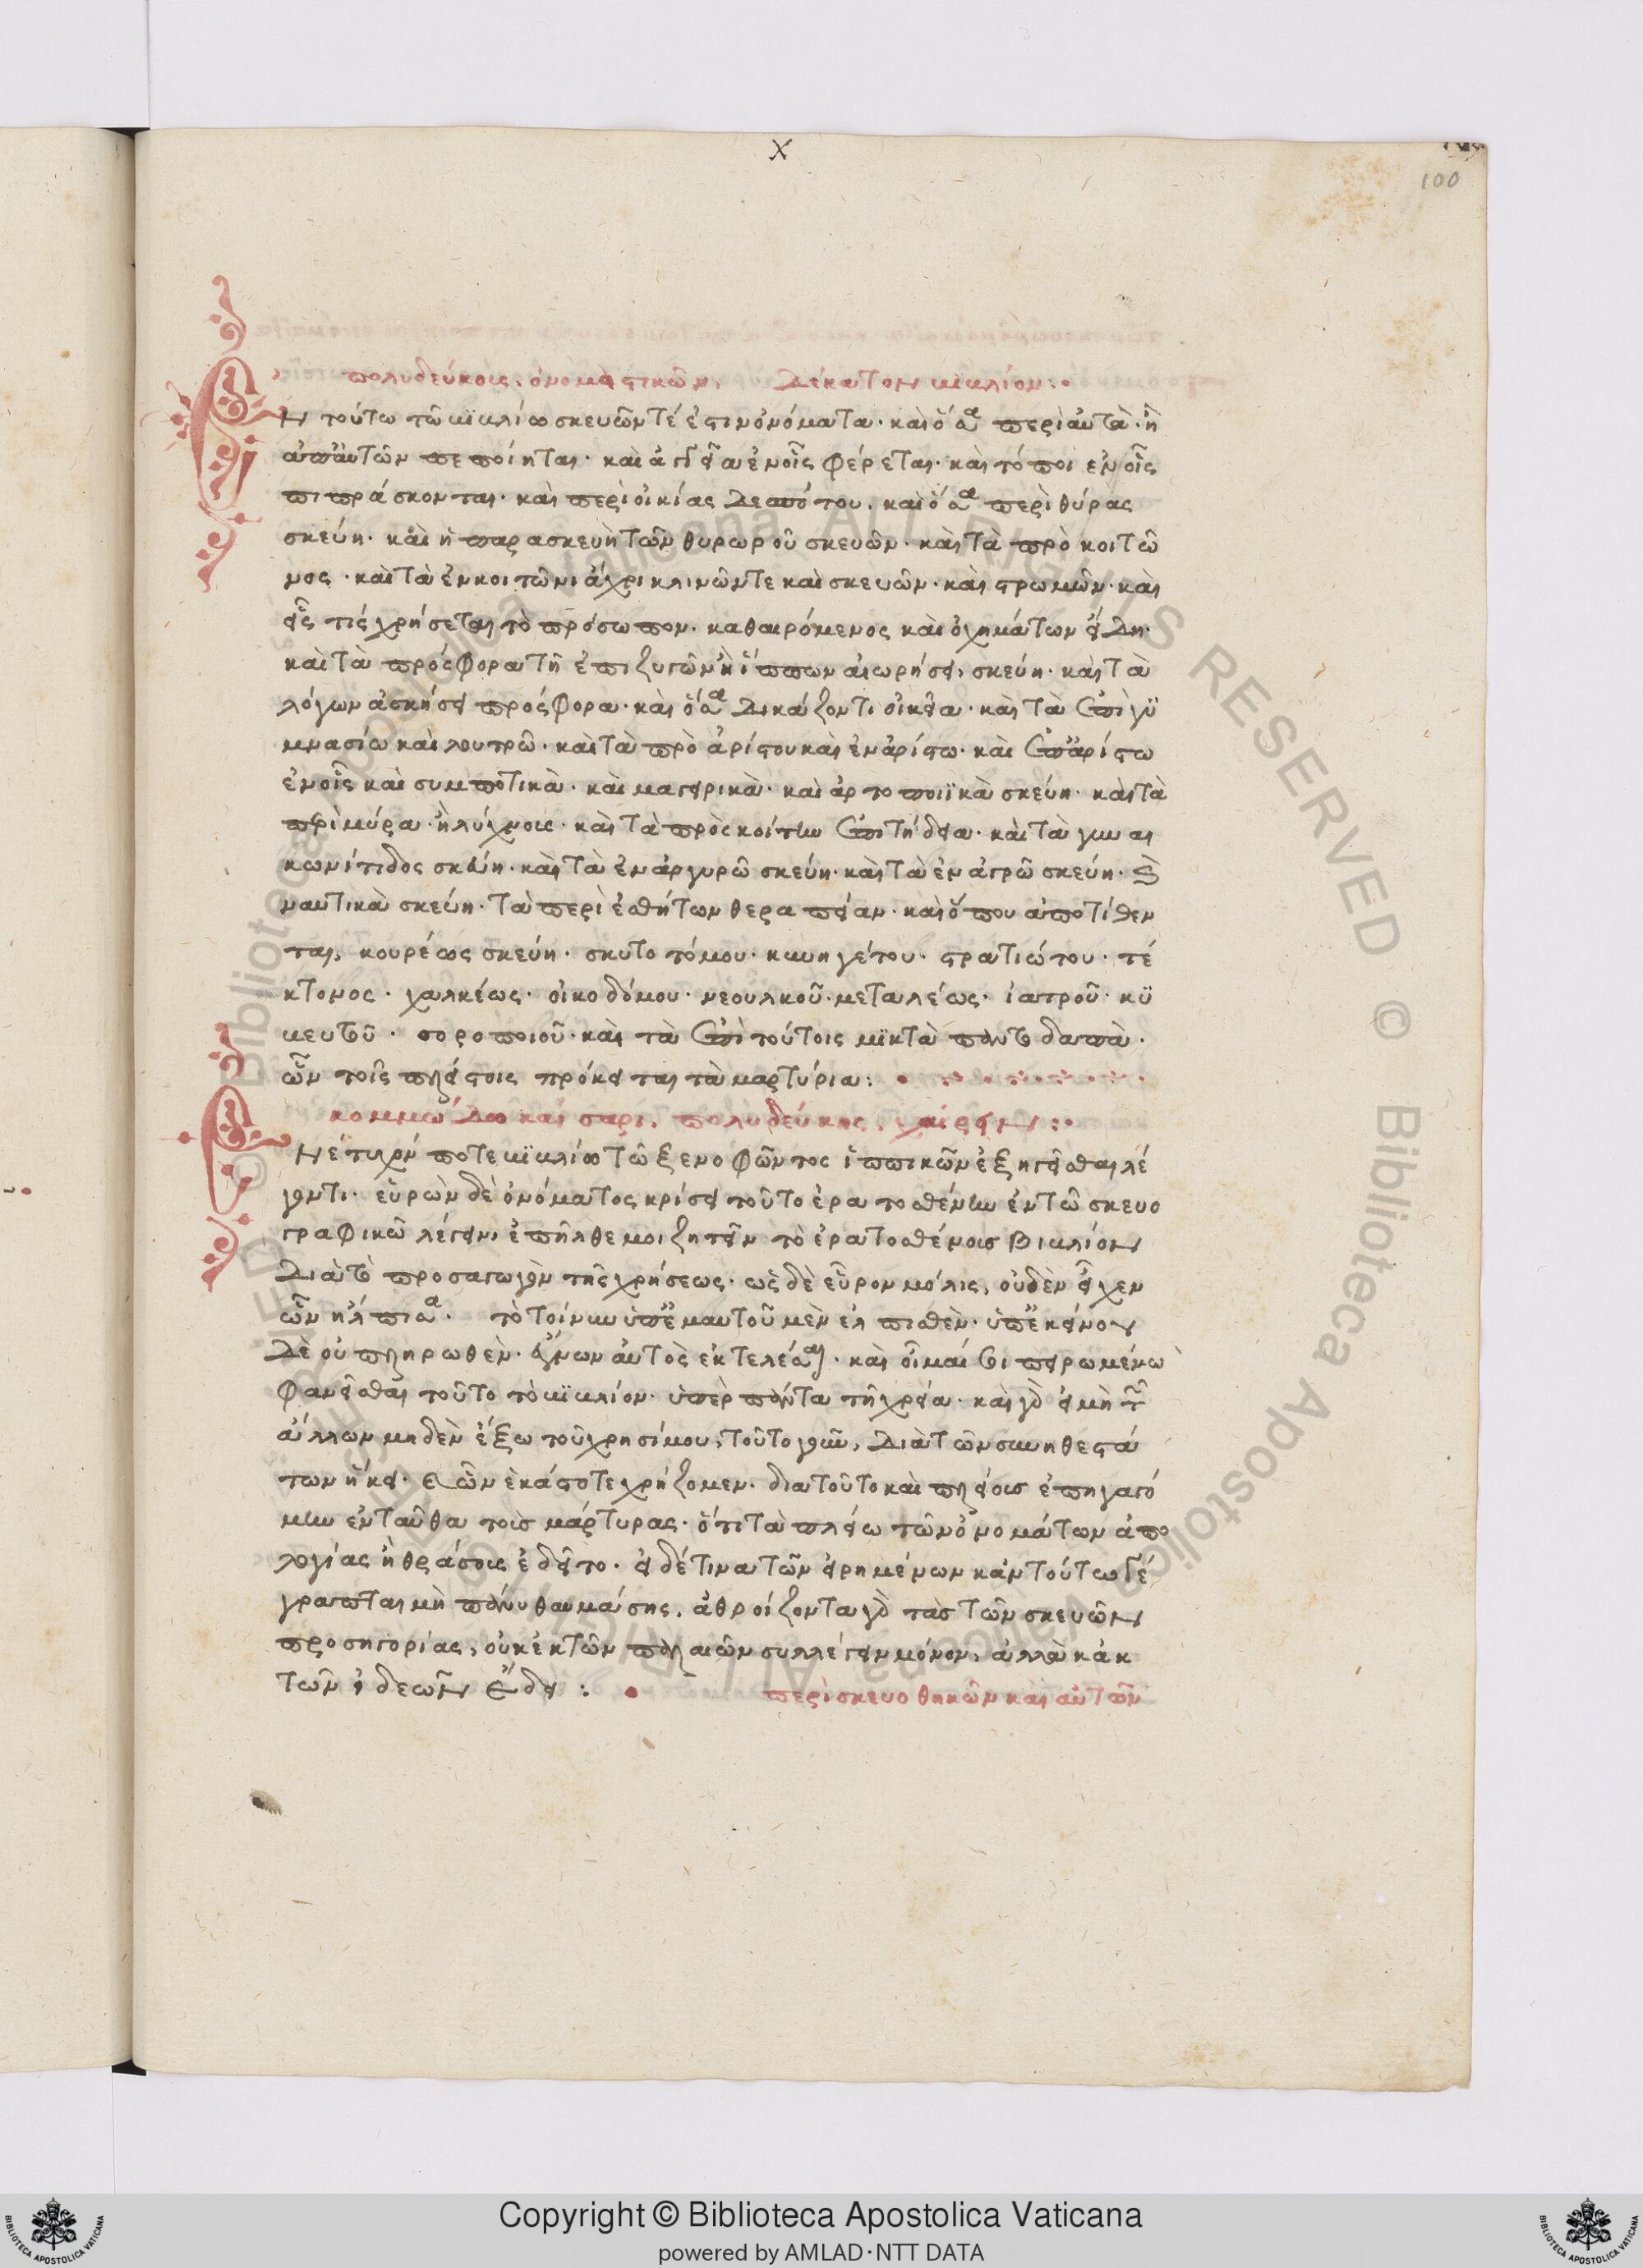 X
100
πολυδεύκους, ὀνομαστικῶν, δέκατον βιβλίον:·
Ἐν τούτω τῶ βιβλίω σκευῶν τέ ἐστιν ὀνόματα· καὶ ὅσα περὶ αὐτὰ· ἢ
ἀπ' αὐτῶν πεποίηται· καὶ ἀγγεῖα ἐν οἷς φέρεται· καὶ τόποι ἐν οἷς
πιπράσκονται· καὶ περὶ οἰκίας δεσπότου, καὶ ὅσα περὶ θύρας
σκεύη· καὶ ἡ παρασκευὴ τῶν θυρωροῦ σκευῶν· καὶ τὰ πρὸ κοιτῶ
νος· καὶ τὰ ἐν κοιτῶνι ἄχρι κλινῶν τε καὶ σκευῶν· καὶ στρωμῶν· καὶ
οἷς τίς χρήσεται τὸ πρόσωπον· καθαιρόμενος καὶ ὀχημάτων εἴδη·
καὶ τὰ πρόσφορα τῆ ἐπὶ ζυγῶν ἢ ἵππων αἰωρήσει, σκεύη· καὶ τὰ
λόγων ἀσκήσει πρόσφορα· καὶ ὅσα δικάζοντι οἰκεῖα· καὶ τὰ ἐπὶ γϋ
μνασίω καὶ λουτρῶ· καὶ τὰ πρὸ ἀρίστου καὶ ἐν ἀρίστω· καὶ ἐπ' ἀρίστω
ἐν οἷς καὶ συμποτικὰ· καὶ μαγειρικὰ· καὶ ἀρτοποιϊκὰ σκεύη· καὶ τὰ
περὶ μύρα· ἢ λύχνους· καὶ τὰ πρὸς κοίτην ἐπιτήδεια· καὶ τὰ γυναι
κωνίτιδος σκεύη· καὶ τὰ ἐν ἀργυρῶ σκεύη· καὶ τὰ ἐν ἀγρῶ σκεύη· καὶ
ναυτικὰ σκεύη· τὰ περὶ ἐσθήτων θεραπείαν· καὶ ὅπου ἀποτίθεν
ται, κουρέως σκεύη· σκυτοτόμου· κυνηγέτου· στρατιώτου· τέ
κτονος· χαλκέως· οἰκοδόμου· νεουλκοῦ· μεταλέως· ἰατροῦ· κϋ
βευτοῦ· σοροποιοῦ· καὶ τὰ ἐπὶ τούτοις μϊκτὰ παντοδαπὰ·
ὧν τοῖς πλείστοις πρόκειται τὰ μαρτύρια:
κομμώδω καίσαρι, πολυδεύκης, χαίρειν:·
Ἐν ἔτυχόν ποτε βιβλίω τῶ ξενοφῶντος ἱππικῶν ἐξηγεῖσθαι λέ
γοντι· εὑρὼν δὲ ὀνόματος κρίσει τοῦτο ἐρατοσθένην ἐν τῶ σκευο
γραφικῶ λέγειν, ἐπῆλθε μοι ζητεῖν τὸ ἐρατοσθένους βιβλίον
διὰ τὸ προσαγωγὸν τῆς χρήσεως· ὡς δὲ εὗρον μόλις, οὐδὲν εἶχεν
ὧν ἤλπισα· τὸ τοίνυν ὑπ' ἐμαυτοῦ μὲν ἐλπισθὲν· ὑπ' ἐκείνου
δὲ οὐ πληρωθὲν· αὐτὸς ἐκτελέσαι· καὶ οἶμαί σοι πειρωμένω
φανεῖσθαι τοῦτο τὸ βιβλίον· ὑπὲρ πάντα τῆ χρεία· καὶ γὰρ εἰ μὴ τῶν
ἄλλων μηδὲν ἔξω τοῦ χρησίμου, τοῦτο γοῦν, διὰ τῶν συνηθεστά
των ἥκει· καὶ ὧν ἑκάστοτε χρήζομεν· δια τοῦτο καὶ πλείους ἐπηγαγό
μην ἐνταῦθα τοὺς μάρτυρας· ὅτι τὰ πλείω τῶν ὀνομάτων ἀπο
λογίας ἢ θράσους ἐδεῖτο· εἰ δέ τινα τῶν εἰρημένων κἀν τούτω γέ
γραπται μὴ πάνυ θαυμάσης, ἀθροίζοντα γὰρ τὰς τῶν σκευῶν
προσηγορίας, οὐκ ἐκ τῶν παλαιῶν συλλέγειν μόνον, ἀλλὰ κἀκ
τῶν ἰδεῶν ἔδει:
περὶ σκευοθηκῶν καὶ αὐτῶν
Copyright © Biblioteca Apostolica Vaticana
powered by AMLAD·NTT DATA